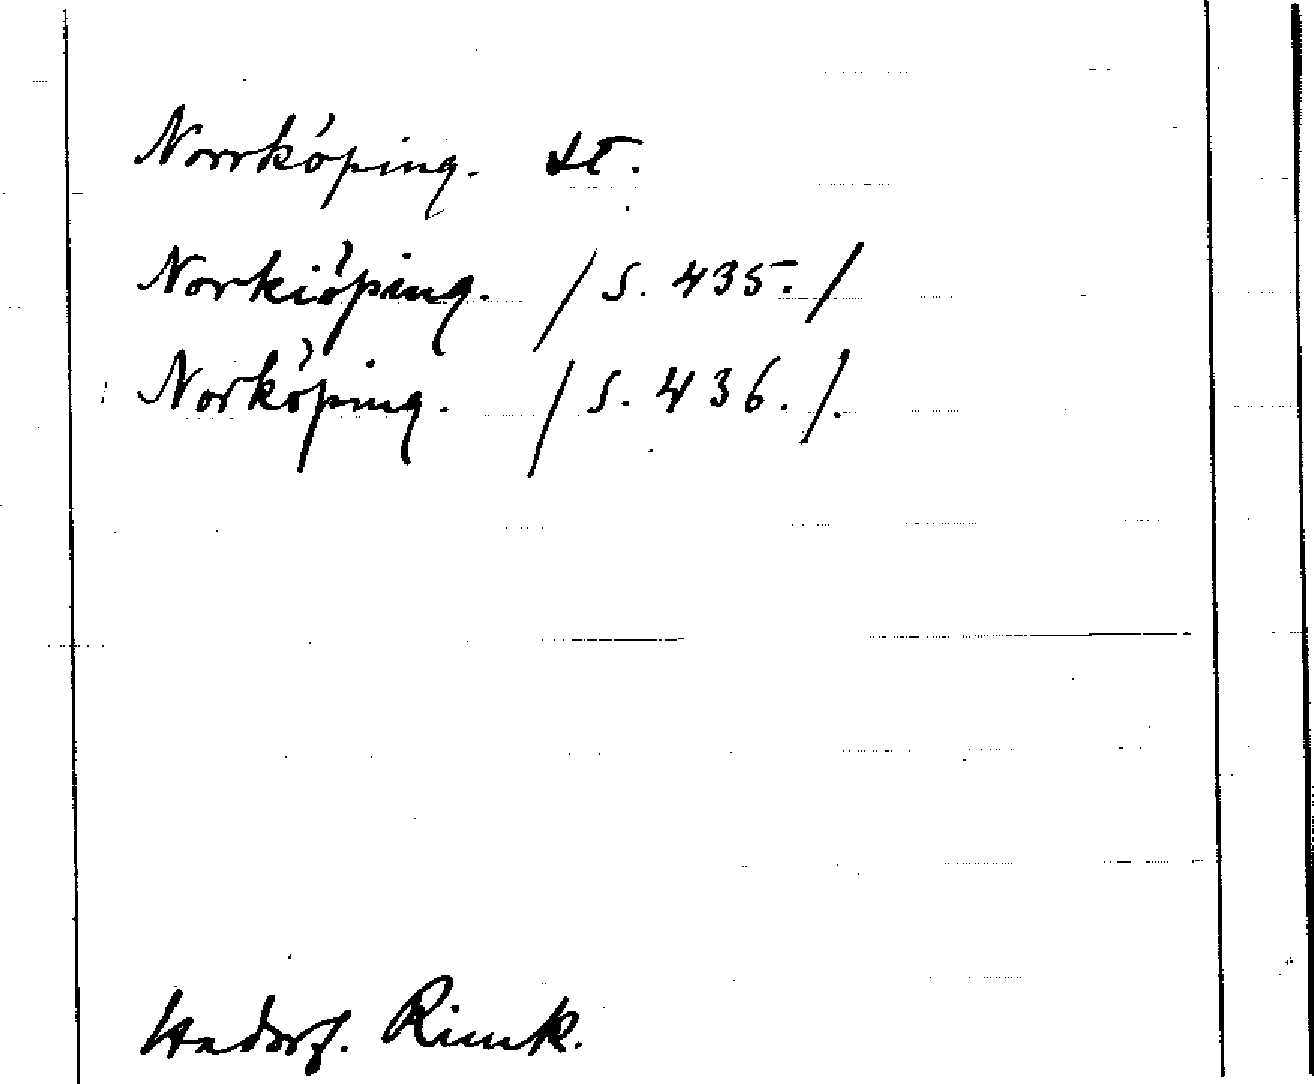 Norrköping. st.
Norkiöping. / S. 435. /
Norköping. / S. 436. /.
Hadorf. Rimk.